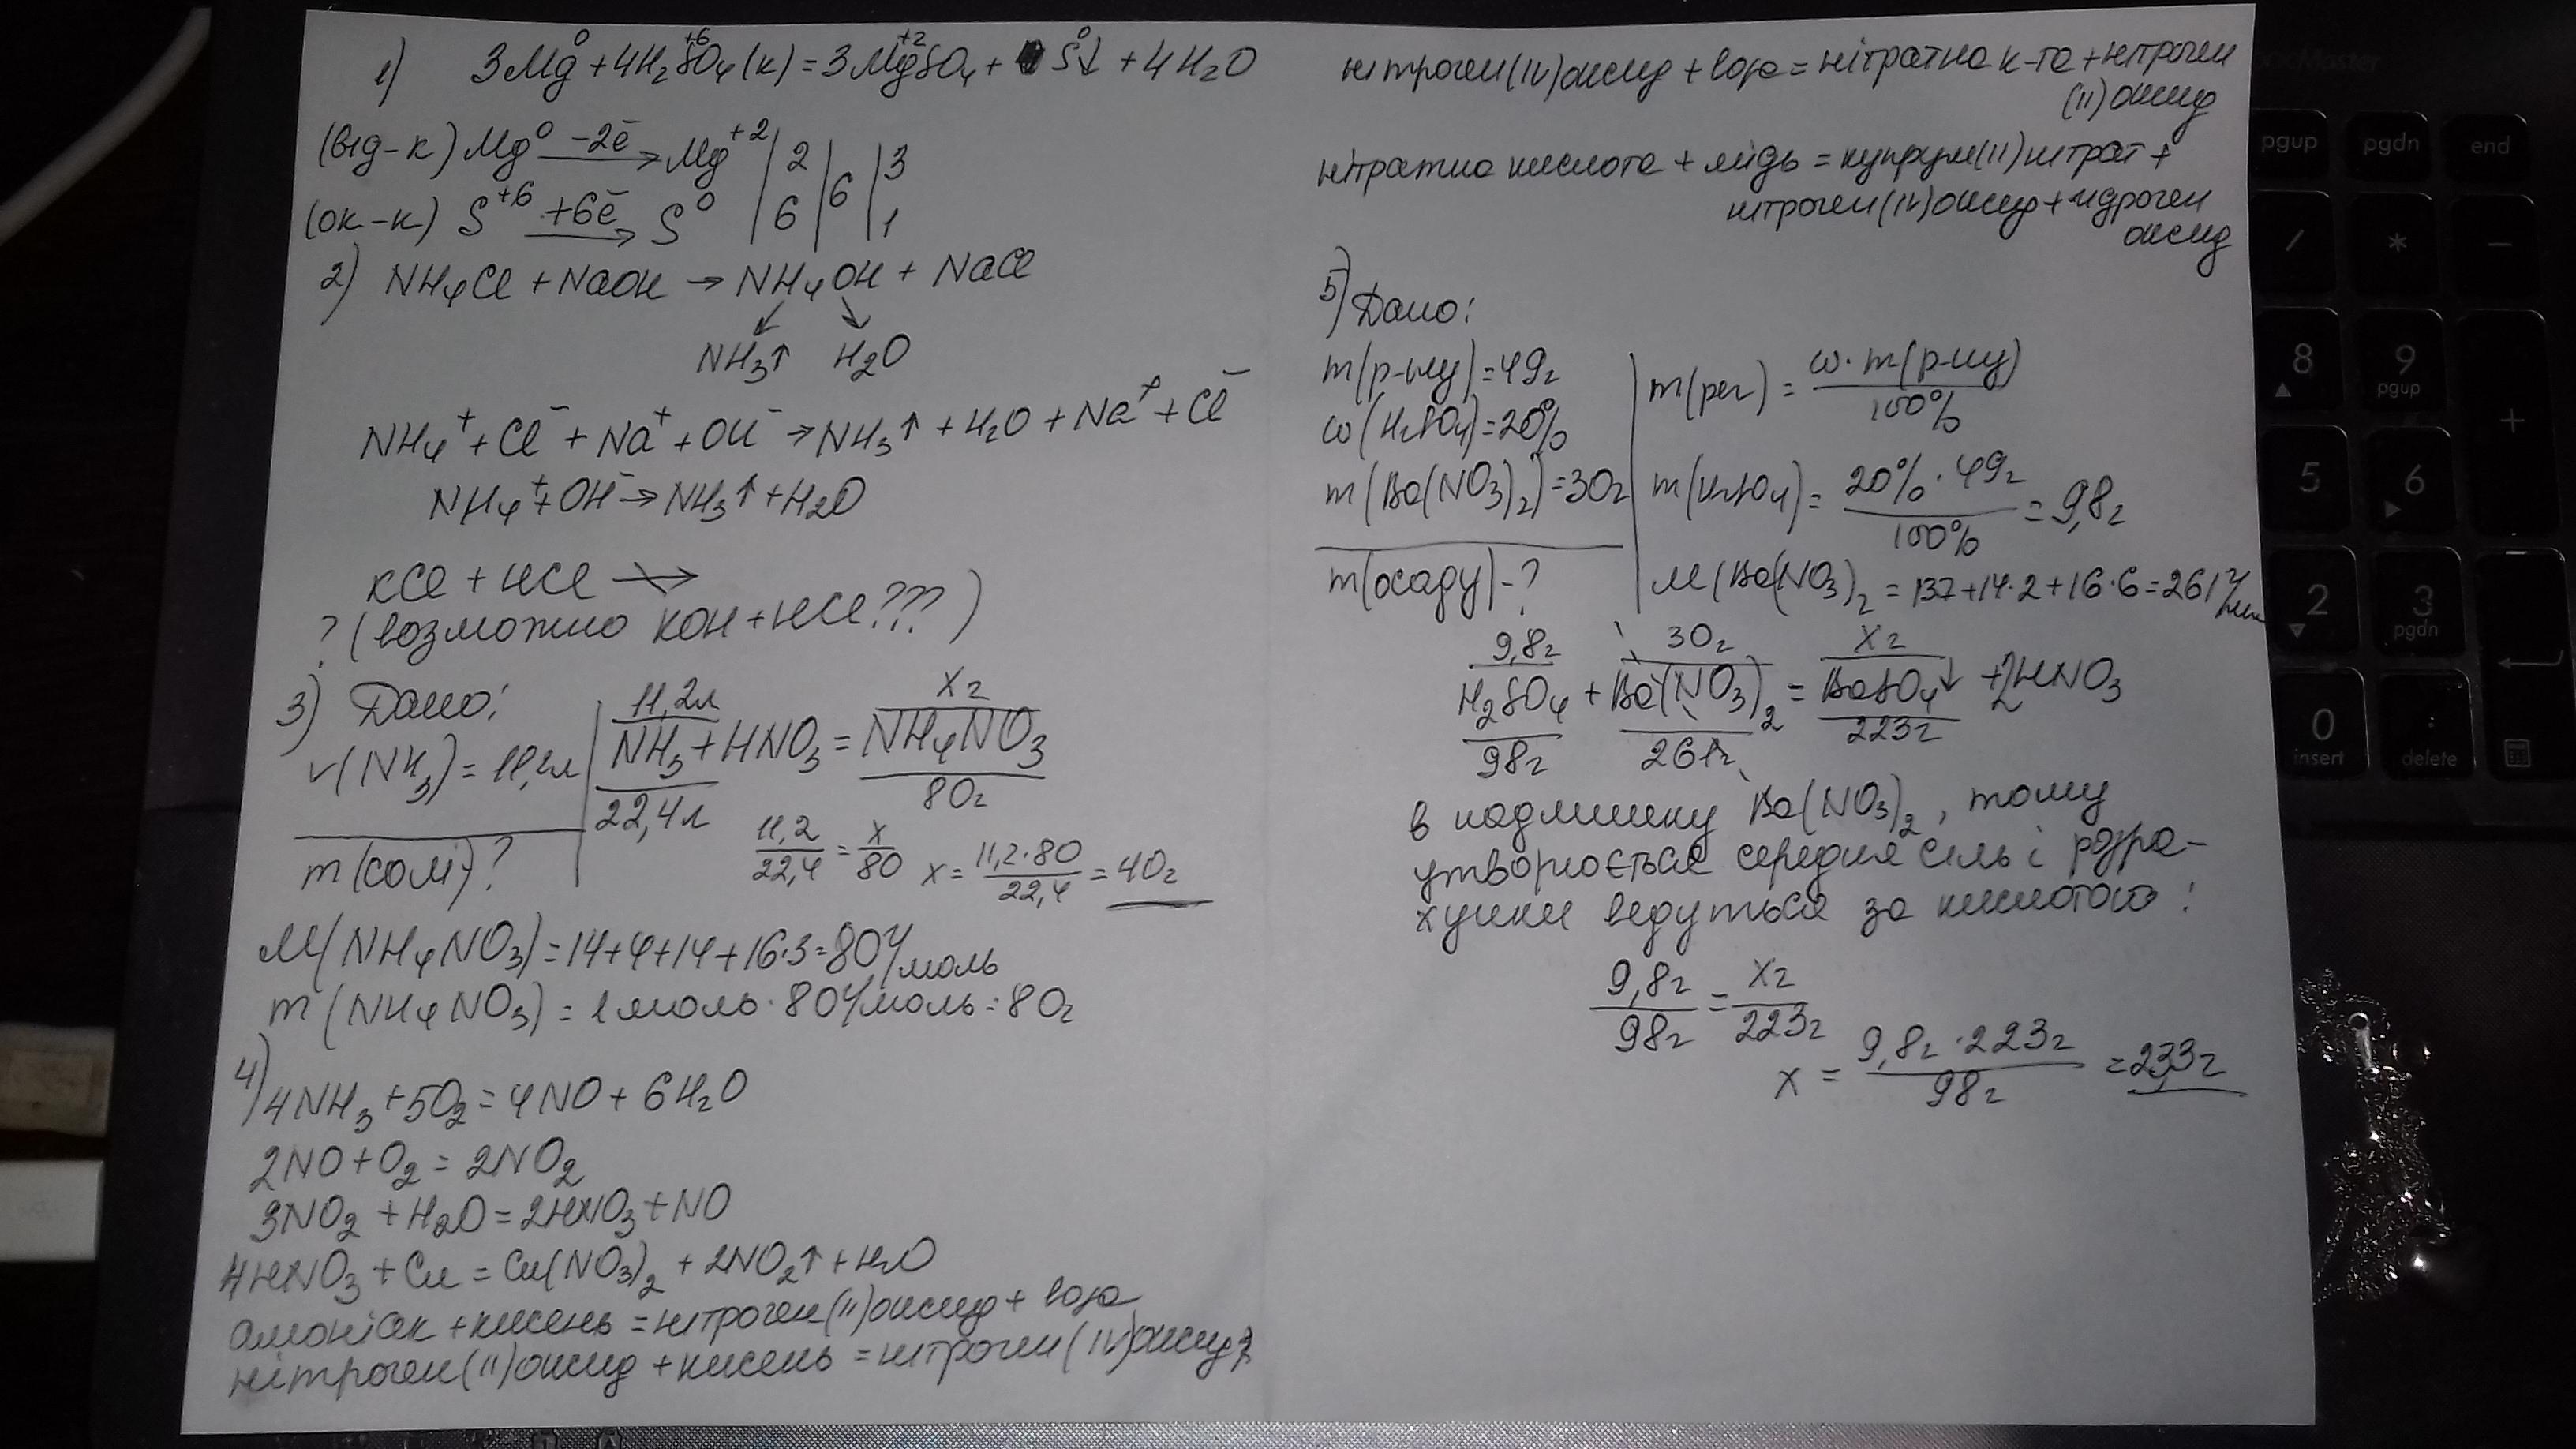 1) 3Mg⁰ + 4H₂S⁺⁶O₄(к) = 3Mg⁺²SO₄ + S⁰↓ + 4H₂O
(від-к) Mg⁰ −2ē → Mg⁺² | 2 | 6 | 3
(ок-к) S⁺⁶ +6ē → S⁰ | 6 | | 1
2) NH₄Cl + NaOH → NH₄OH + NaCl
↙ ↘
NH₃↑ H₂O
NH₄⁺ + Cl⁻ + Na⁺ + OH⁻ → NH₃↑ + H₂O + Na⁺ + Cl⁻
NH₄⁺ + OH⁻ → NH₃↑ + H₂O
KCl + HCl ↛
? (возможно KOH + HCl ???)
3) Дано:
v(NH₃) = 11,2л
m(солі)-?
11,2л x г
NH₃ + HNO₃ = NH₄NO₃
22,4л 80г
11,2/22,4 = x/80 x = 11,2·80/22,4 = 40г
M(NH₄NO₃) = 14+4+14+16·3 = 80г/моль
m(NH₄NO₃) = 1моль · 80г/моль = 80г
4) 4NH₃ + 5O₂ = 4NO + 6H₂O
2NO + O₂ = 2NO₂
3NO₂ + H₂O = 2HNO₃ + NO
4HNO₃ + Cu = Cu(NO₃)₂ + 2NO₂↑ + H₂O
амоніак + кисень = нітроген(II)оксид + вода
нітроген(II)оксид + кисень = нітроген(IV)оксид
нітроген(IV)оксид + вода = нітратна к-та + нітроген
(II)оксид
нітратна кислота + мідь = купрум(II)нітрат +
нітроген(IV)оксид + гідроген
оксид
5) Дано:
m(р-ну) = 49г
ω(H₂SO₄) = 20%
m(Ba(NO₃)₂) = 30г
m(осаду)-?
m(реч) = ω·m(р-ну)/100%
m(H₂SO₄) = 20%·49г/100% = 9,8г
M(Ba(NO₃)₂ = 137+14·2+16·6 = 261г/моль
9,8г 30г x г
H₂SO₄ + Ba(NO₃)₂ = BaSO₄↓ + 2HNO₃
98г 261г 223г
в надлишку Ba(NO₃)₂, тому
утворюється середня сіль і розра-
хунки ведуться за кислотою:
9,8г/98г = x г/223г
x = 9,8г·223г/98г = 23,3г
pgup pgdn end
/ * −
8 9 pgup
+
5 6
2 3 pgdn
0 insert . delete